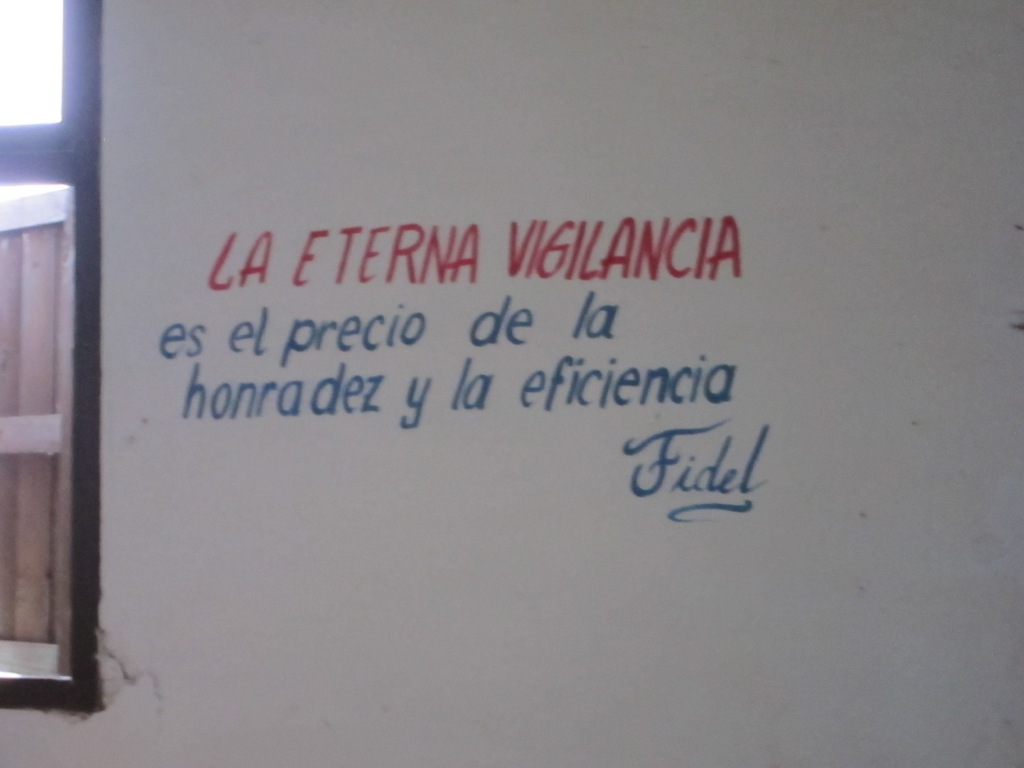 LA ETERNA VIGILANCIA
es el precio de la
honradez y la eficiencia
Fidel